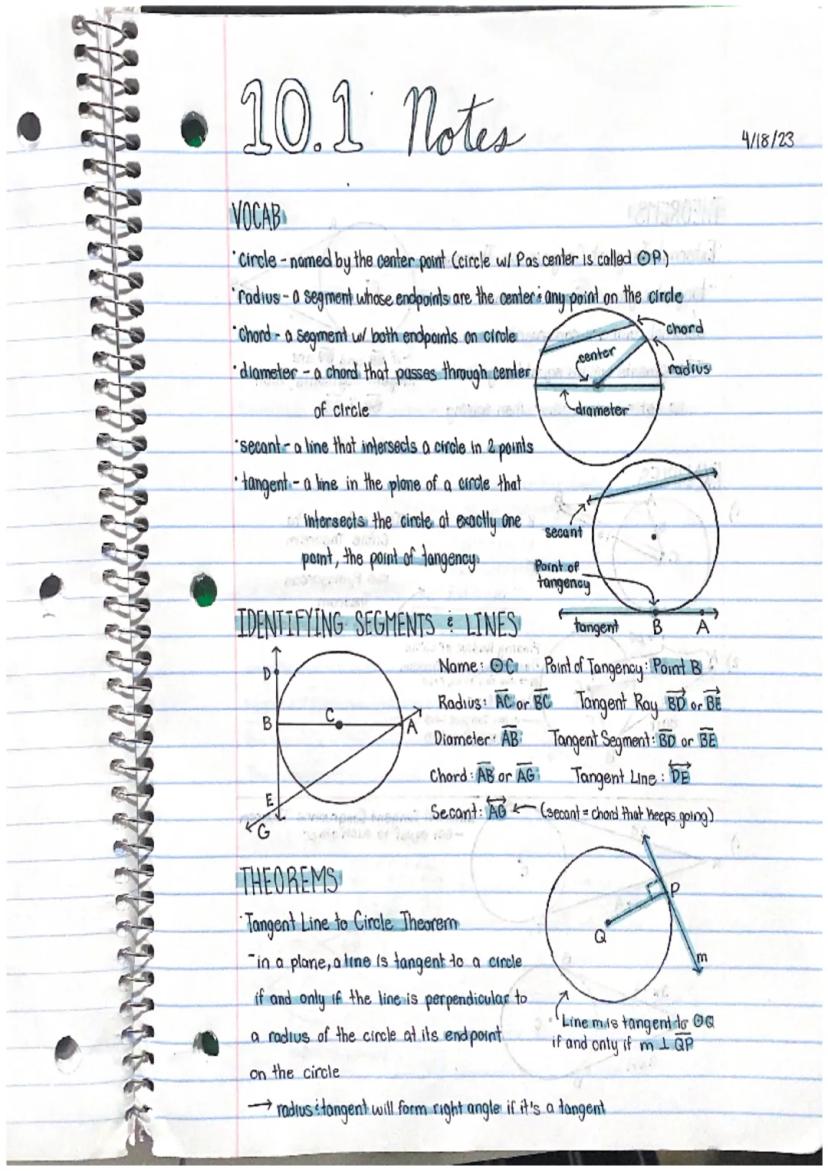 10.1 Notes
4/18/23
VOCAB
·circle - named by the center point (circle w/ P as center is called ⊙P)
·radius - a segment whose endpoints are the center & any point on the circle
·chord - a segment w/ both endpoints on circle
·diameter - a chord that passes through center
of circle
·secant - a line that intersects a circle in 2 points
·tangent - a line in the plane of a circle that
intersects the circle at exactly one
point, the point of tangency
chord
center
radius
diameter
secant
Point of
tangency
tangent B A
IDENTIFYING SEGMENTS & LINES
D
B
C
A
E
G
Name: ⊙C Point of Tangency: Point B
Radius: A̅C̅ or B̅C̅ Tangent Ray BD→ or BE→
Diameter: A̅B̅ Tangent Segment: B̅D̅ or B̅E̅
Chord: A̅B̅ or A̅G̅ Tangent Line: DE↔
Secant: AG↔ ← (secant = chord that keeps going)
THEOREMS
·Tangent Line to Circle Theorem
-in a plane, a line is tangent to a circle
if and only if the line is perpendicular to
a radius of the circle at its endpoint
on the circle
→ radius & tangent will form right angle if it's a tangent
P
Q
m
Line m is tangent to ⊙Q
if and only if m ⊥ Q̅P̅